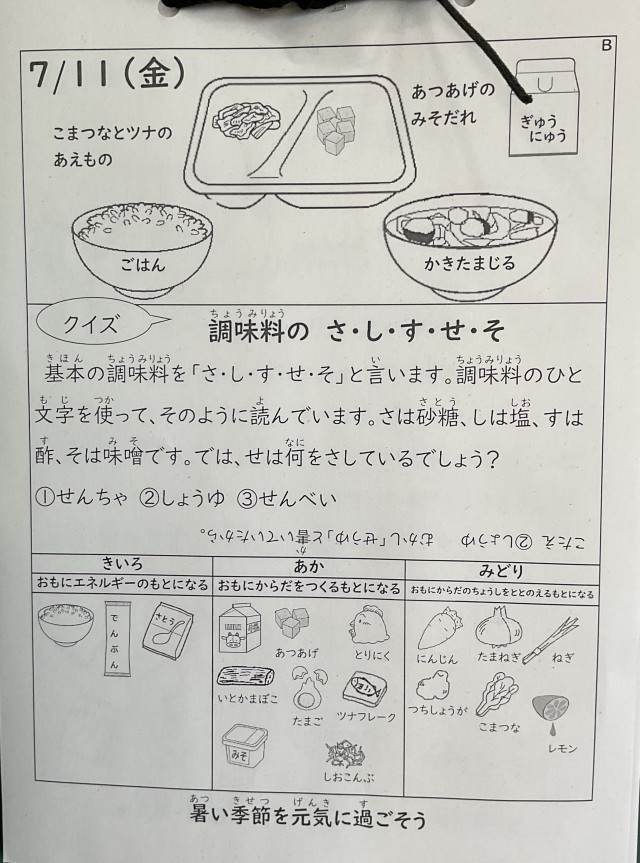 B
7/11(金)
こまつなとツナの
あえもの
あつあげの
みそだれ
ぎゅう
にゅう
ごはん
かきたまじる
クイズ
ちょうみりょう
調味料の さ・し・す・せ・そ
きほん ちょうみりょう い ちょうみりょう
基本の調味料を「さ・し・す・せ・そ」と言います。調味料のひと
もじ つか よ さとう しお
文字を使って、そのように読んでいます。さは砂糖、しは塩、すは
す みそ なに
酢、そは味噌です。では、せは何をさしているでしょう?
①せんちゃ ②しょうゆ ③せんべい
か
こたえ ②しょうゆ むかし「せうゆ」と書いていたから。
きいろ
おもにエネルギーのもとになる
でんぷん
さとう
あか
おもにからだをつくるもとになる
あつあげ
とりにく
いとかまぼこ
たまご
ツナフレーク
みそ
しおこんぶ
みどり
おもにからだのちょうしをととのえるもとになる
にんじん
たまねぎ
ねぎ
つちしょうが
こまつな
レモン
あつ きせつ げんき す
暑い季節を元気に過ごそう